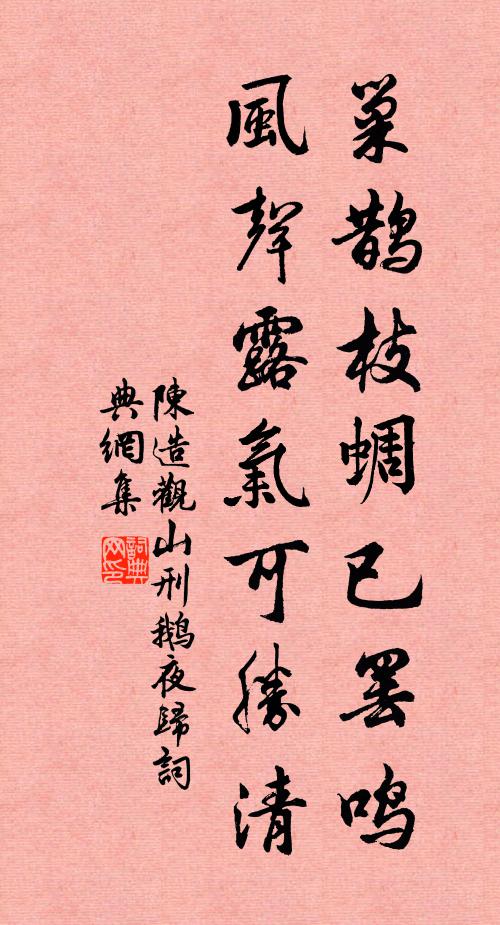 巢鹊枝蜩已罢鸣
風聲露氣可勝清
陳造觀山刑鵝夜歸詞
典網集
詞典网印